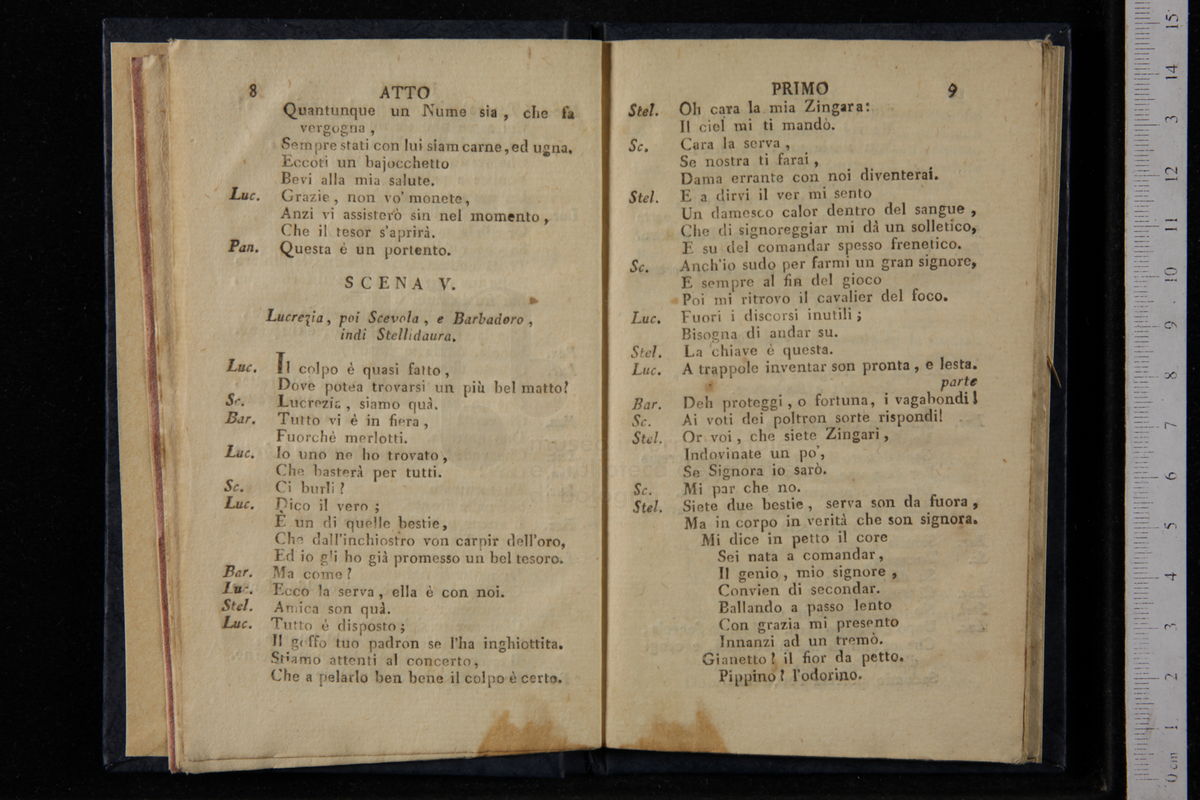 8 ATTO
Quantunque un Nume sia, che fa
vergogna,
Sempre stati con lui siam carne, ed ugna.
Eccoti un bajocchetto
Bevi alla mia salute.
Luc. Grazie, non vo' monete,
Anzi vi assisterò sin nel momento,
Che il tesor s'aprirà.
Pan. Questa é un portento.
SCENA V.
Lucrezia, poi Scevola, e Barbadoro,
indi Stellidaura.
Luc. Il colpo é quasi fatto,
Dove potea trovarsi un più bel matto?
Sc. Lucrezia, siamo quà.
Bar. Tutto vi é in fiera,
Fuorchè merlotti.
Luc. Io uno ne ho trovato,
Che basterà per tutti.
Sc. Ci burli?
Luc. Dico il vero;
È un di quelle bestie,
Che dall'inchiostro von carpir dell'oro,
Ed io gli ho già promesso un bel tesoro.
Bar. Ma come?
Luc. Ecco la serva, ella é con noi.
Stel. Amica son quà.
Luc. Tutto é disposto;
Il goffo tuo padron se l'ha inghiottita.
Stiamo attenti al concerto,
Che a pelarlo ben bene il colpo é certo.
PRIMO 9
Stel. Oh cara la mia Zingara:
Il ciel mi ti mandò.
Sc. Cara la serva,
Se nostra ti farai,
Dama errante con noi diventerai.
Stel. E a dirvi il ver mi sento
Un damesco calor dentro del sangue,
Che di signoreggiar mi dà un solletico,
E su del comandar spesso frenetico.
Sc. Anch'io sudo per farmi un gran signore,
E sempre al fin del gioco
Poi mi ritrovo il cavalier del foco.
Luc. Fuori i discorsi inutili;
Bisogna di andar su.
Stel. La chiave é questa.
Luc. A trappole inventar son pronta, e lesta.
parte
Bar. Deh proteggi, o fortuna, i vagabondi!
Sc. Ai voti dei poltron sorte rispondi!
Stel. Or voi, che siete Zingari,
Indovinate un po',
Se Signora io sarò.
Sc. Mi par che no.
Stel. Siete due bestie, serva son da fuora,
Ma in corpo in verità che son signora.
Mi dice in petto il core
Sei nata a comandar,
Il genio, mio signore,
Convien di secondar.
Ballando a passo lento
Con grazia mi presento
Innanzi ad un tremò.
Gianetto? il fior da petto.
Pippino? l'odorino.
0 cm 1 2 3 4 5 6 7 8 9 10 11 12 13 14 15